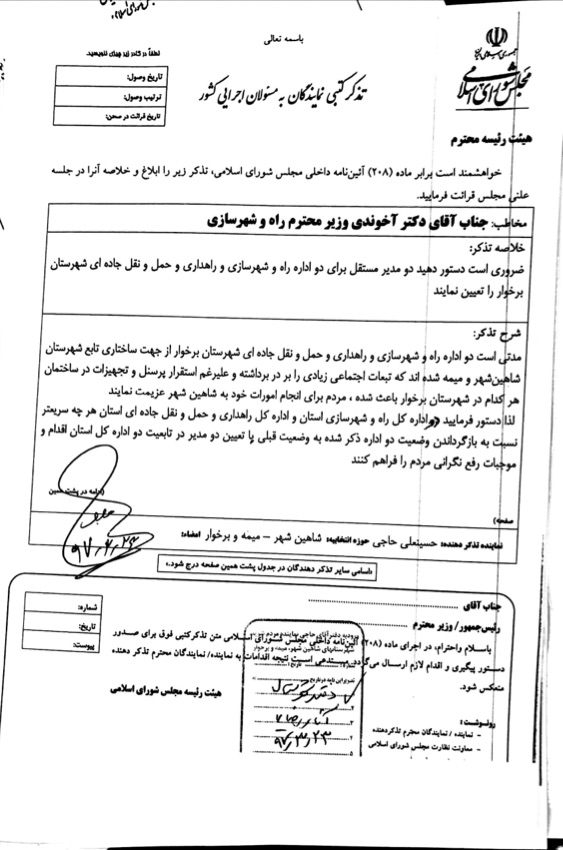 باسمه تعالی
جمهوری اسلامی ایران
مجلس شورای اسلامی
تذکر کتبی نمایندگان به مسئولان اجرایی کشور
لطفاً در کادر زیر چیزی ننویسید.
تاریخ وصول:
ترتیب وصول:
تاریخ قرائت در صحن:
هیئت رئیسه محترم
خواهشمند است برابر ماده (۲۰۸) آئین‌نامه داخلی مجلس شورای اسلامی، تذکر زیر را ابلاغ و خلاصه آنرا در جلسه
علنی مجلس قرائت فرمایید.
مخاطب: جناب آقای دکتر آخوندی وزیر محترم راه و شهرسازی
خلاصه تذکر:
ضروری است دستور دهید دو مدیر مستقل برای دو اداره راه و شهرسازی و راهداری و حمل و نقل جاده ای شهرستان
برخوار را تعیین نمایند
شرح تذکر:
مدتی است دو اداره راه و شهرسازی و راهداری و حمل و نقل جاده ای شهرستان برخوار از جهت ساختاری تابع شهرستان
شاهین‌شهر و میمه شده اند که تبعات اجتماعی زیادی را بر در برداشته و علیرغم استقرار پرسنل و تجهیزات در ساختمان
هر کدام در شهرستان برخوار باعث شده ، مردم برای انجام امورات خود به شاهین شهر عزیمت نمایند
لذا دستور فرمایید اداره کل راه و شهرسازی استان و اداره کل راهداری و حمل و نقل جاده ای استان هر چه سریعتر
نسبت به بازگرداندن وضعیت دو اداره ذکر شده به وضعیت قبلی یا تعیین دو مدیر در تابعیت دو اداره کل استان اقدام و
موجبات رفع نگرانی مردم را فراهم کنند
(ادامه در پشت همین
صفحه)
نماینده تذکر دهنده: حسینعلی حاجی حوزه انتخابیه: شاهین شهر – میمه و برخوار امضاء:
۹۷/۳/۲۳
«اسامی سایر تذکر دهندگان در جدول پشت همین صفحه درج شود.»
جناب آقای
رئیس‌جمهور/ وزیر محترم
شماره:
تاریخ:
پیوست:
باسلام واحترام، در اجرای ماده (۲۰۸) آئین‌نامه داخلی مجلس شورای اسلامی متن تذکرکتبی فوق برای صدور
دستور پیگیری و اقدام لازم ارسال می‌گردد. مستدعی است نتیجه اقدامات به نماینده/ نمایندگان محترم تذکر دهنده
منعکس شود.
هیئت رئیسه مجلس شورای اسلامی
ورودیه دفتر آقای حاجی نماینده مردم
شهرستانهای شاهین شهر، میمه و برخوار
تصویر این نامه در تاریخ
۹۷/۳/۲۳
رونوشت:
- نماینده / نمایندگان محترم تذکردهنده
- معاونت نظارت مجلس شورای اسلامی